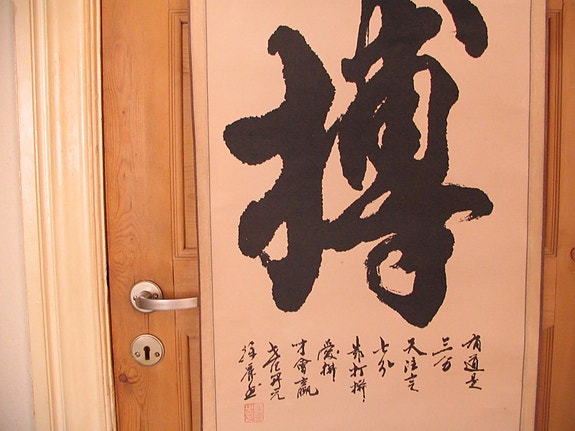 搏
有道是
三分
天注定
七分
靠打拼
愛拼
才會贏